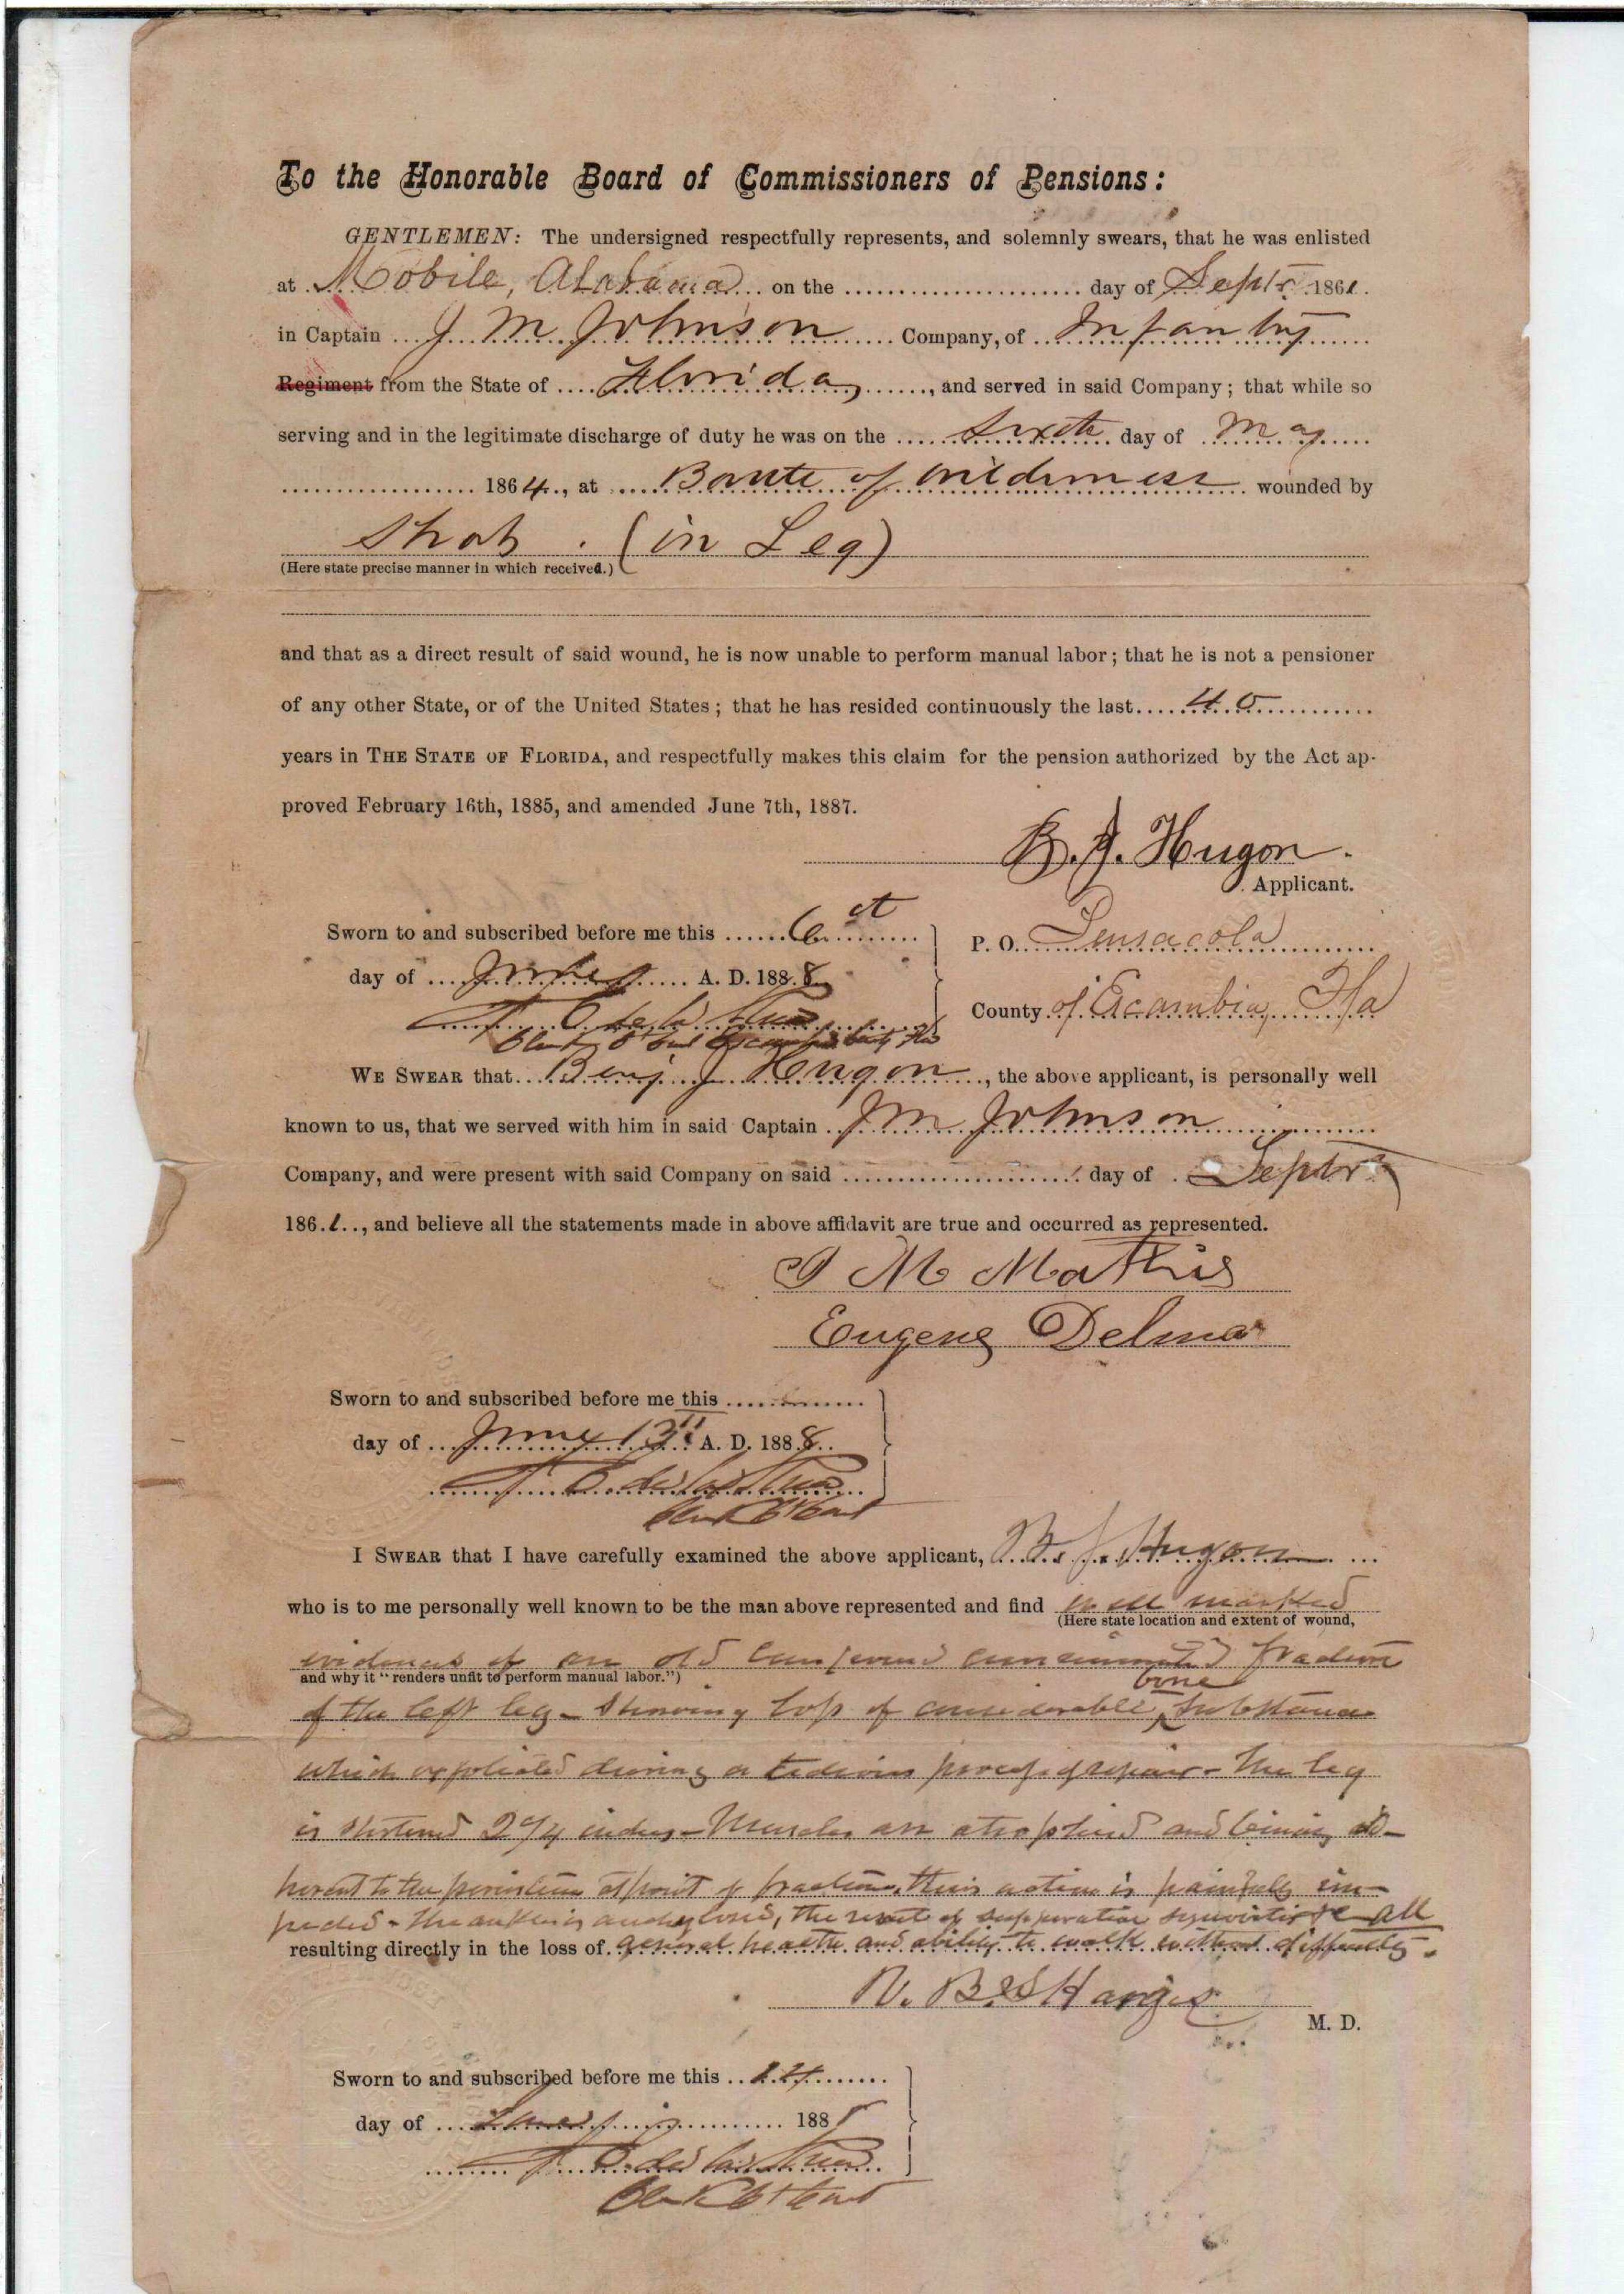 To the Honorable Board of Commissioners of Pensions:
GENTLEMEN: The undersigned respectfully represents, and solemnly swears, that he was enlisted
at Mobile, Alabama on the day of Septr 1861.
in Captain J M Johnson Company, of Infantry
Regiment from the State of Florida, and served in said Company; that while so
serving and in the legitimate discharge of duty he was on the Sixth day of May
1864, at Battle of Wilderness wounded by
Shot. (in Leg)
(Here state precise manner in which received.)
and that as a direct result of said wound, he is now unable to perform manual labor; that he is not a pensioner
of any other State, or of the United States; that he has resided continuously the last 40
years in THE STATE OF FLORIDA, and respectfully makes this claim for the pension authorized by the Act ap-
proved February 16th, 1885, and amended June 7th, 1887.
B. J. Hugon.
Applicant.
Sworn to and subscribed before me this 6
day of June A. D. 1888
P. O. Pensacola
County of Escambia, Fla
WE SWEAR that Benj J Hugon, the above applicant, is personally well
known to us, that we served with him in said Captain J M Johnson
Company, and were present with said Company on said day of Septr
1861, and believe all the statements made in above affidavit are true and occurred as represented.
J M Mathis
Eugene Delmar
Sworn to and subscribed before me this
day of June 13th A. D. 1888
I SWEAR that I have carefully examined the above applicant, B. J. Hugon
who is to me personally well known to be the man above represented and find well marked
(Here state location and extent of wound,
evidences of an old compound comminuted fracture
and why it "renders unfit to perform manual labor.")
bone
of the left leg - showing loss of considerable substance
which exfoliated during a tedious process of repair - The leg
is shortened 2 3/4 inches - Muscles are atrophied and being ad-
herent to the periosteum at point of fracture, their action is painfully im-
peded - The ankle is anchylosed, the result of suppurative synovitis - all
resulting directly in the loss of general health and ability to walk without difficulty.
R. B. S. Hargis
M. D.
Sworn to and subscribed before me this 14
day of June 1888
Clerk Ct Court